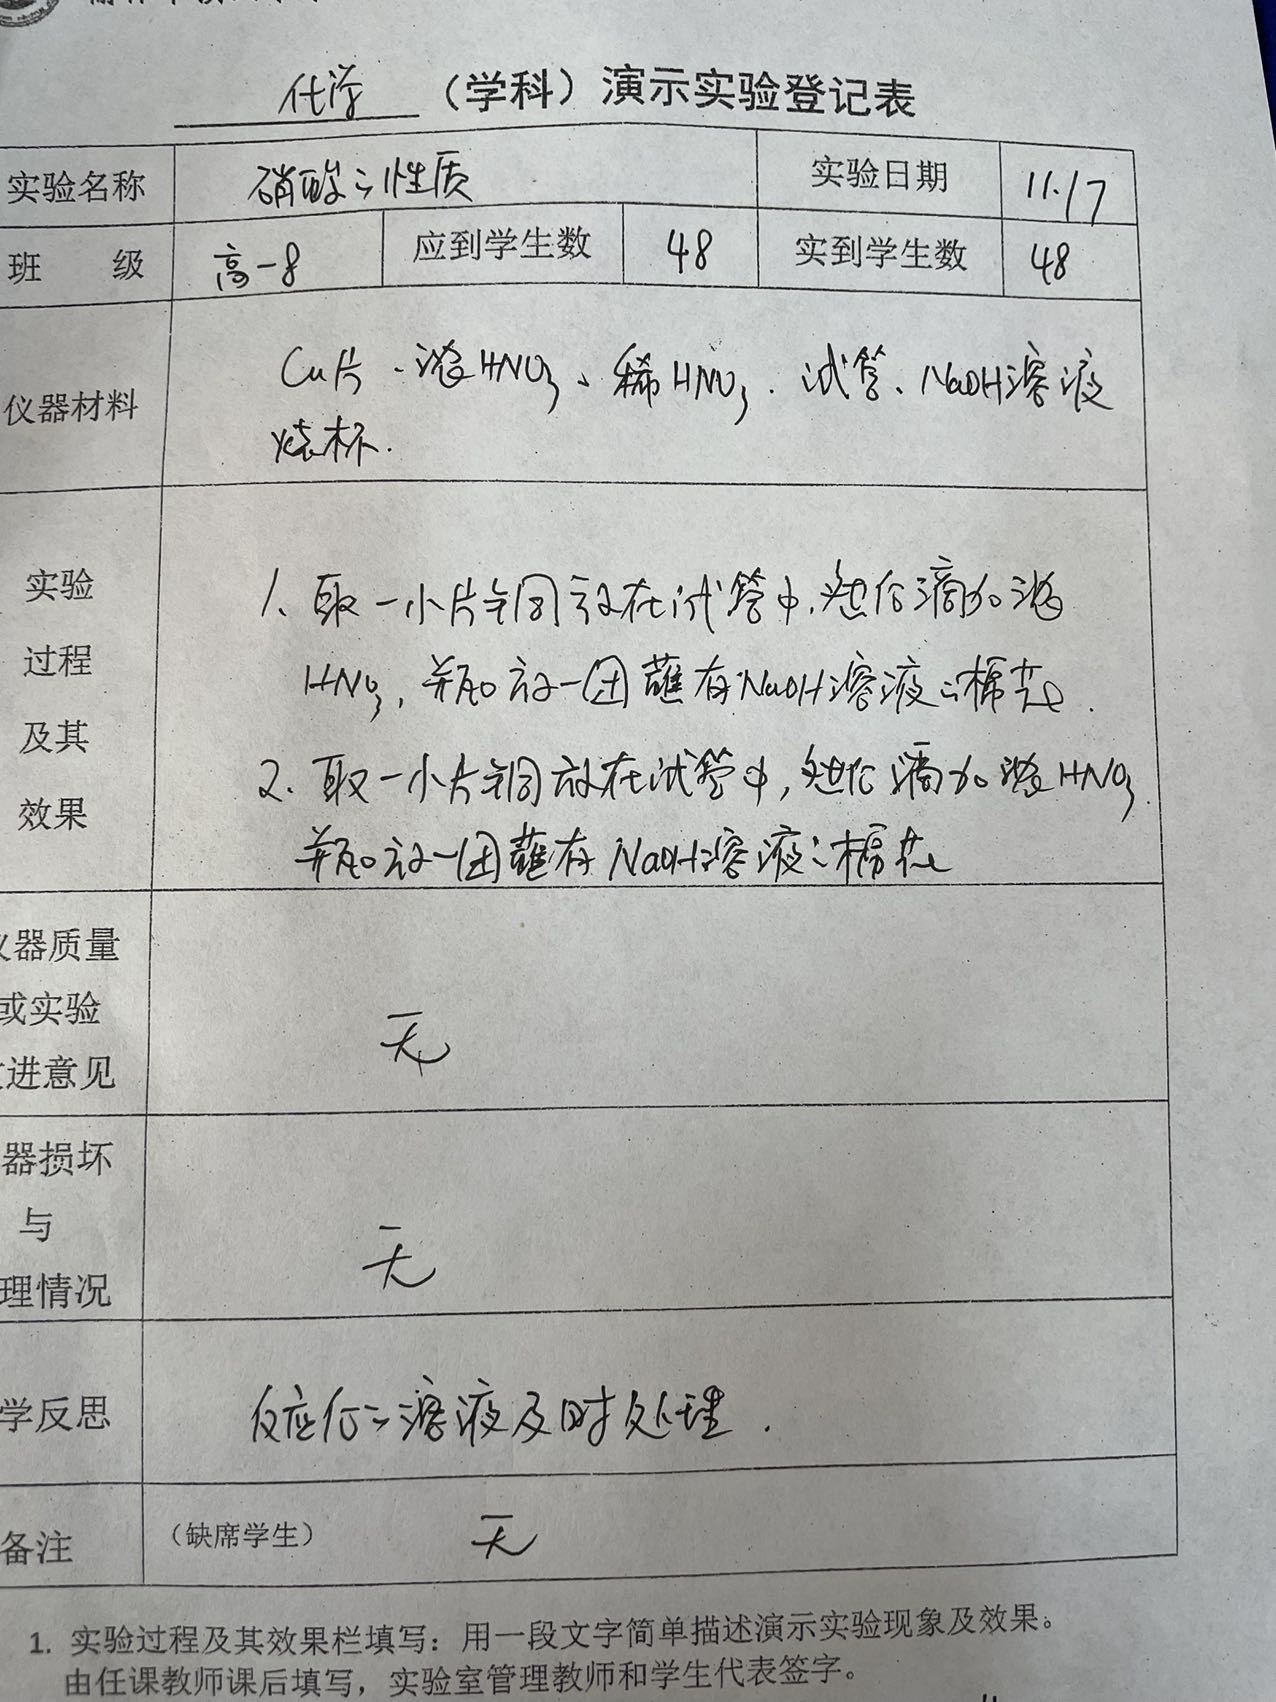 化学 （学科）演示实验登记表
实验名称 硝酸的性质 实验日期 11.17
班 级 高一8 应到学生数 48 实到学生数 48
仪器材料 Cu片、浓HNO3、稀HNO3、试管、NaOH溶液
烧杯.
实验
过程
及其
效果
1. 取一小片铜放在试管中,然后滴加浓
HNO3, 并加放一团蘸有NaOH溶液的棉花.
2. 取一小片铜放在试管中, 然后滴加浓HNO3.
并加放一团蘸有NaOH溶液的棉花
仪器质量
或实验
进意见
无
器损坏
与
理情况
无
学反思 反应后的溶液及时处理.
备注 （缺席学生） 无
1. 实验过程及其效果栏填写：用一段文字简单描述演示实验现象及效果。
由任课教师课后填写，实验室管理教师和学生代表签字。